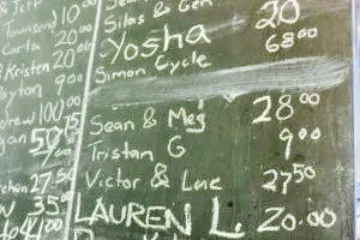 Jeff
Townsend 10⁰⁰
Carla 20⁰⁰
& Kristen 20⁰⁰
ayton 9⁰⁰
drew 100⁰⁰
27⁵⁰
35⁰⁰
Silas & Gen 20
Yosha 68⁰⁰
Simon Cycle
Sean & Meg 28⁰⁰
Tristan G 9⁰⁰
Victor & Lne 27⁵⁰
LAUREN L 20.00